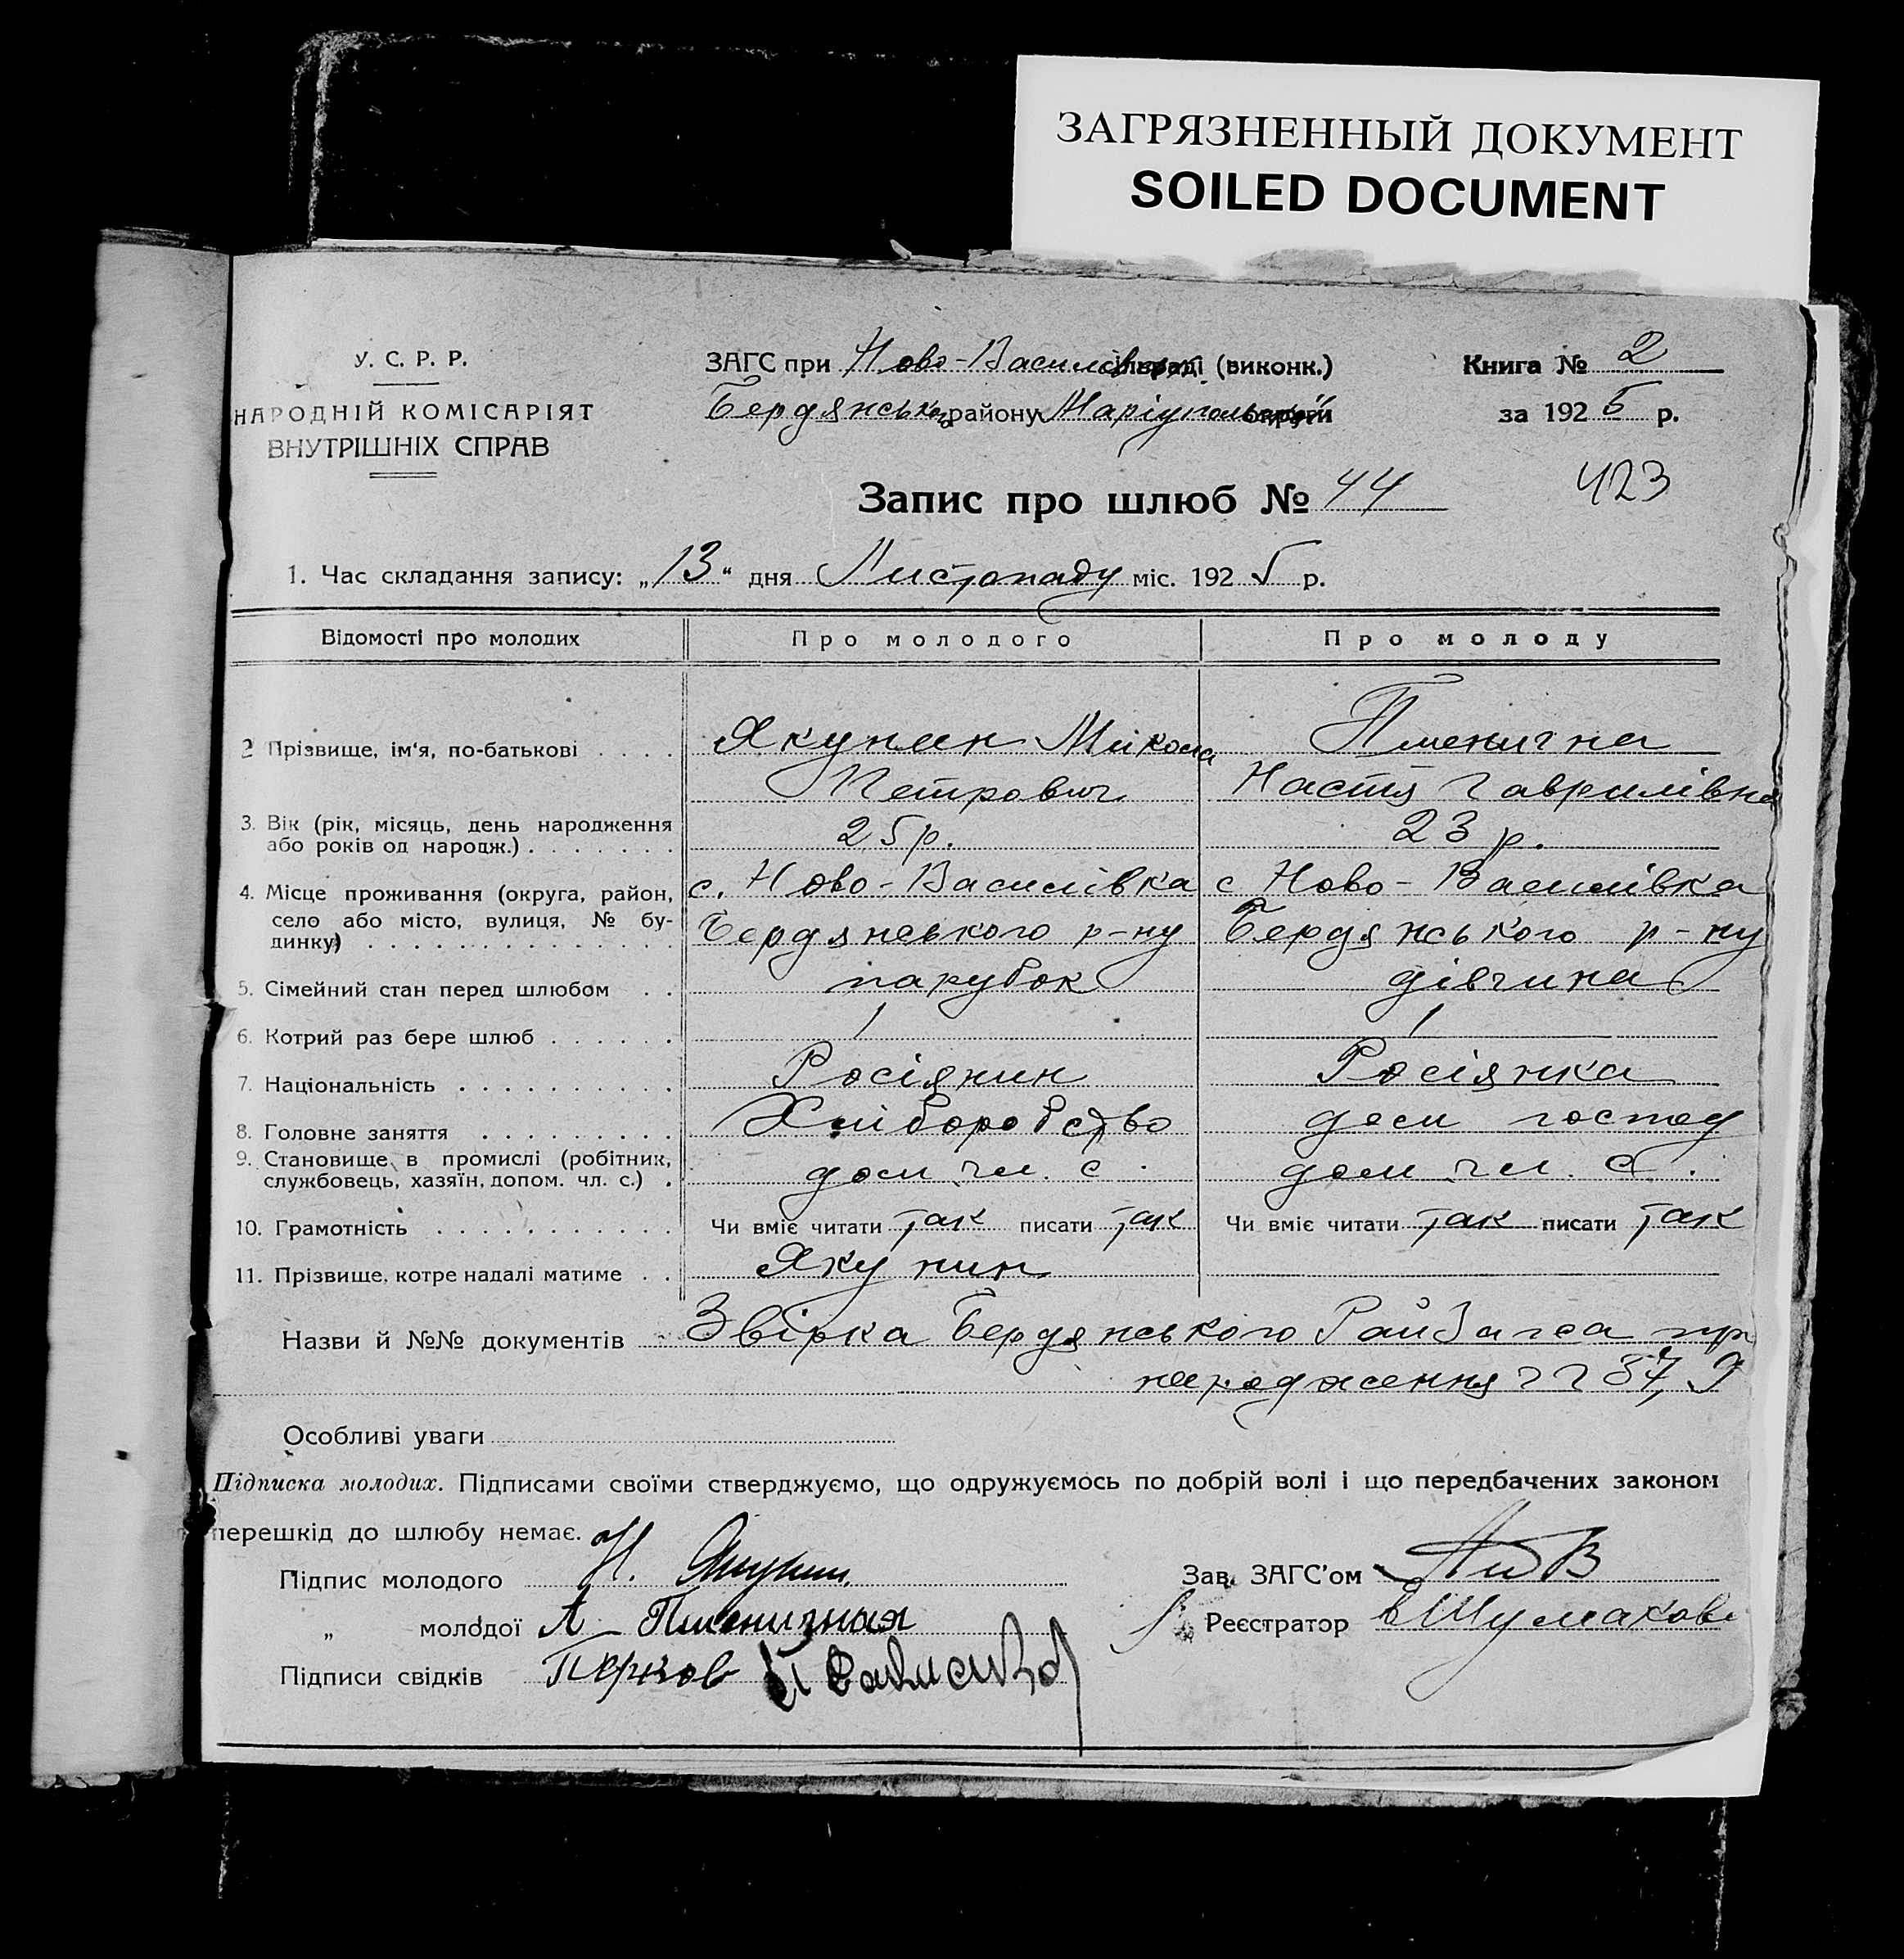 ЗАГРЯЗНЕННЫЙ ДОКУМЕНТ
SOILED DOCUMENT
У. С. Р. Р.
НАРОДНІЙ КОМІСАРІЯТ
ВНУТРІШНІХ СПРАВ
ЗАГС при Ново-Василівськ сільраді (виконк.)
Бердянського району Маріупольської округи
Книга № 2
за 1925 р.
423
Запис про шлюб № 44
1. Час складання запису: „13“ дня Листопаду міс. 1925 р.
Відомості про молодих Про молодого Про молоду
2 Прізвище, ім‘я, по-батькові . . . . Якунин Микола Пшенична
Петрович Настя Гаврилівна
3. Вік (рік, місяць, день народження
або років од народж.) . . . . . . . 25 р. 23 р.
4. Місце проживання (округа, район, с. Ново-Василівка с Ново-Василівка
село або місто, вулиця, № бу-
динку) Бердянського р-ну Бердянського р-ну
5. Сімейний стан перед шлюбом . . парубок дівчина
6. Котрий раз бере шлюб . . . . . . 1 1
7. Національність . . . . . . . . . . Росіянин Росіянка
8. Головне заняття . . . . . . . . . Хліборобство дом господ
9. Становище в промислі (робітник,
службовець, хазяїн, допом. чл. с.) . дом чл. с. дом чл. с.
10. Грамотність . . . . . . . . . . . Чи вміє читати так писати так Чи вміє читати так писати так
11. Прізвище, котре надалі матиме . . Якунин
Назви й №№ документів Звірка Бердянського РайЗагса пр
народження
Особливі уваги
Підписка молодих. Підписами своїми стверджуємо, що одружуємось по добрій волі і що передбачених законом
перешкід до шлюбу немає.
Підпис молодого Н. Якунин.
Зав. ЗАГС'ом
„ молодої А Пшеничная
Реєстратор Шумаков
Підписи свідків